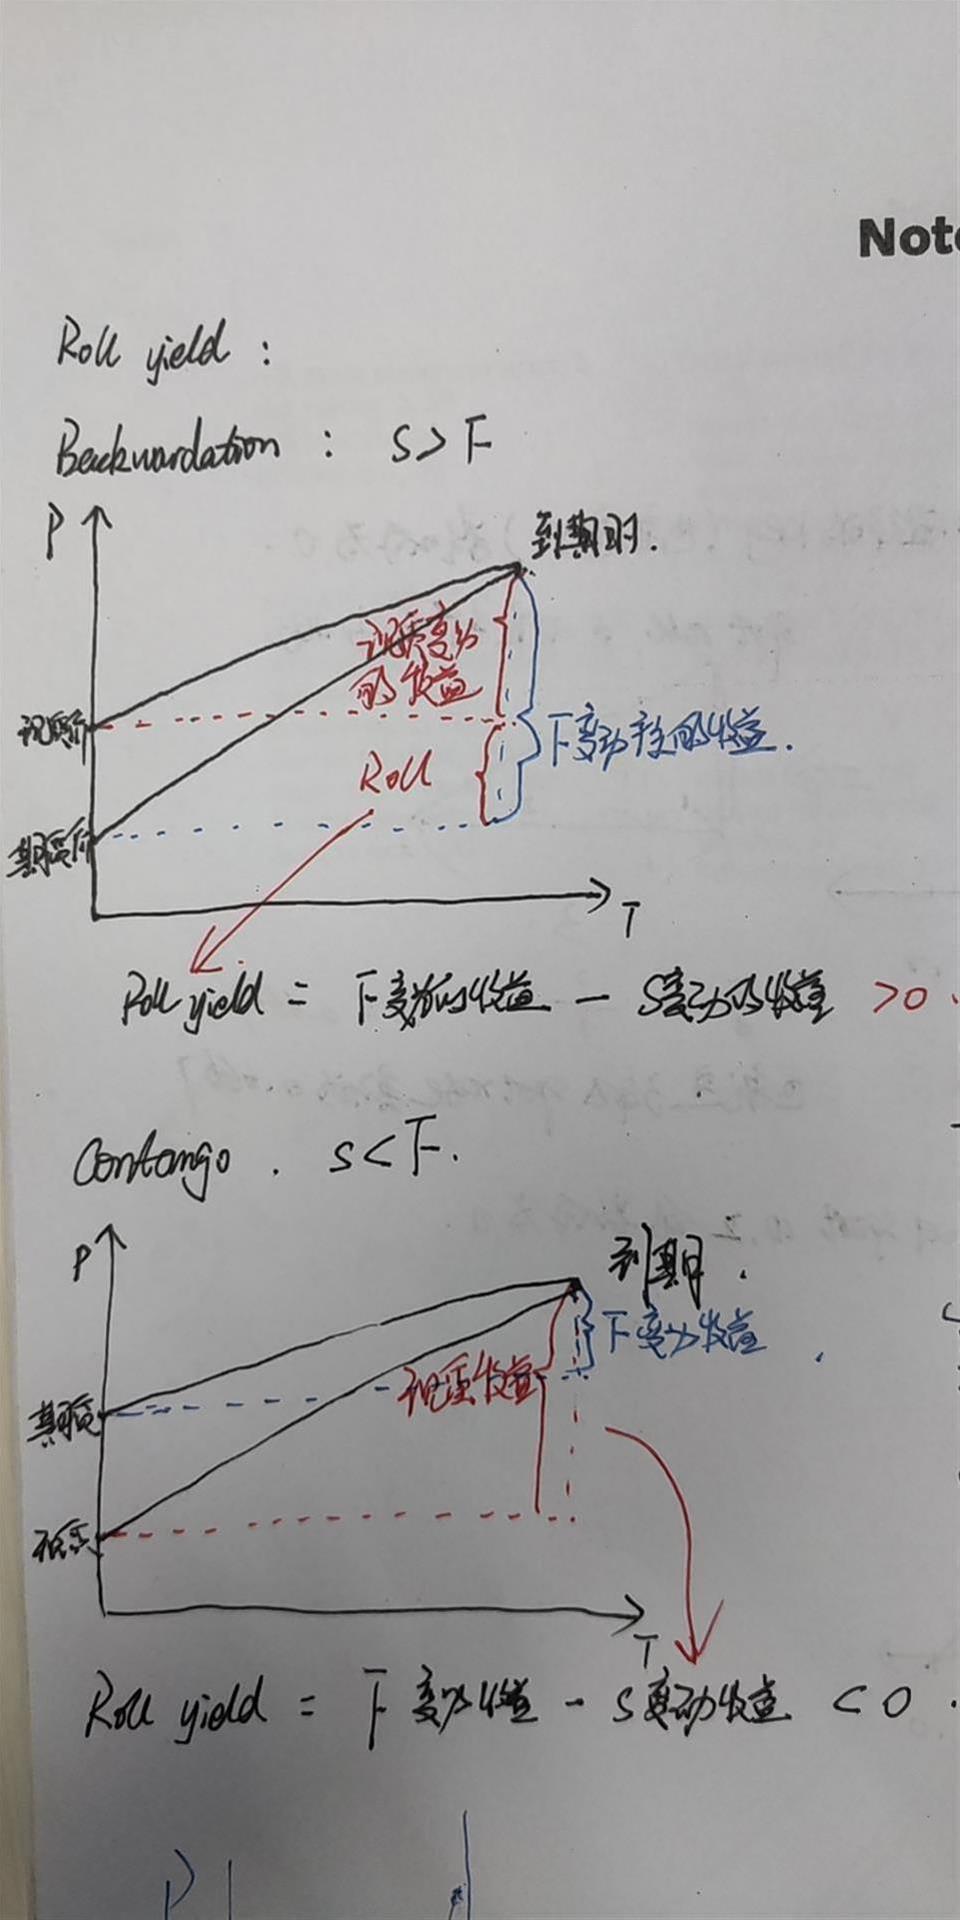 Note
Roll yield :
Backwardation : S > F
P
到期时.
现货变动
的收益
现货价
F变动产生的收益.
Roll
期货价
T
Roll yield = F变动的收益 - S变动的收益 >0.
Contango . S < F.
P
到期时.
F变动收益
期货
现货收益
现货
T
Roll yield = F 变动收益 - S变动收益 <0.